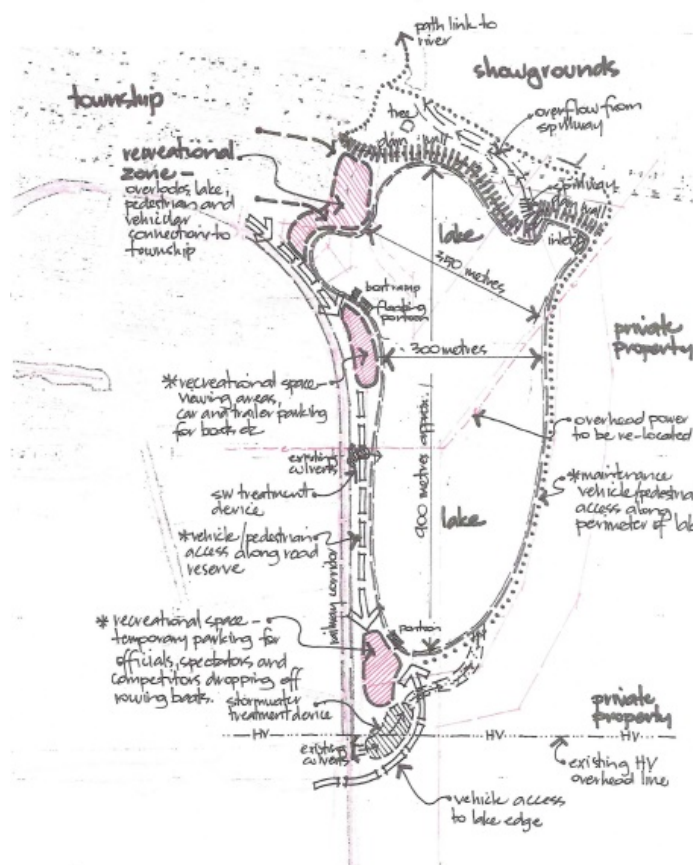 path link to
river
showgrounds
township
tree
overflow from
spillway
dam wall
recreational
zone –
overlooks lake,
pedestrian and
vehicular
connection to
township
spillway
dam wall
inlet
lake
350 metres
boat ramp
floating
pontoon
private
property
300 metres
*recreational space –
viewing areas,
car and trailer parking
for boats etc
overhead power
to be re-located
900 metres approx.
existing
culverts
SW treatment
device
lake
*maintenance
vehicle/pedestrian
access along
perimeter of lake
*vehicle/pedestrian
access along road
reserve
railway corridor
*recreational space –
temporary parking for
officials, spectators and
competitors dropping off
rowing boats.
pontoon
stormwater
treatment device
private
property
HV
HV
HV
existing
culverts
existing HV
overhead line
vehicle access
to lake edge